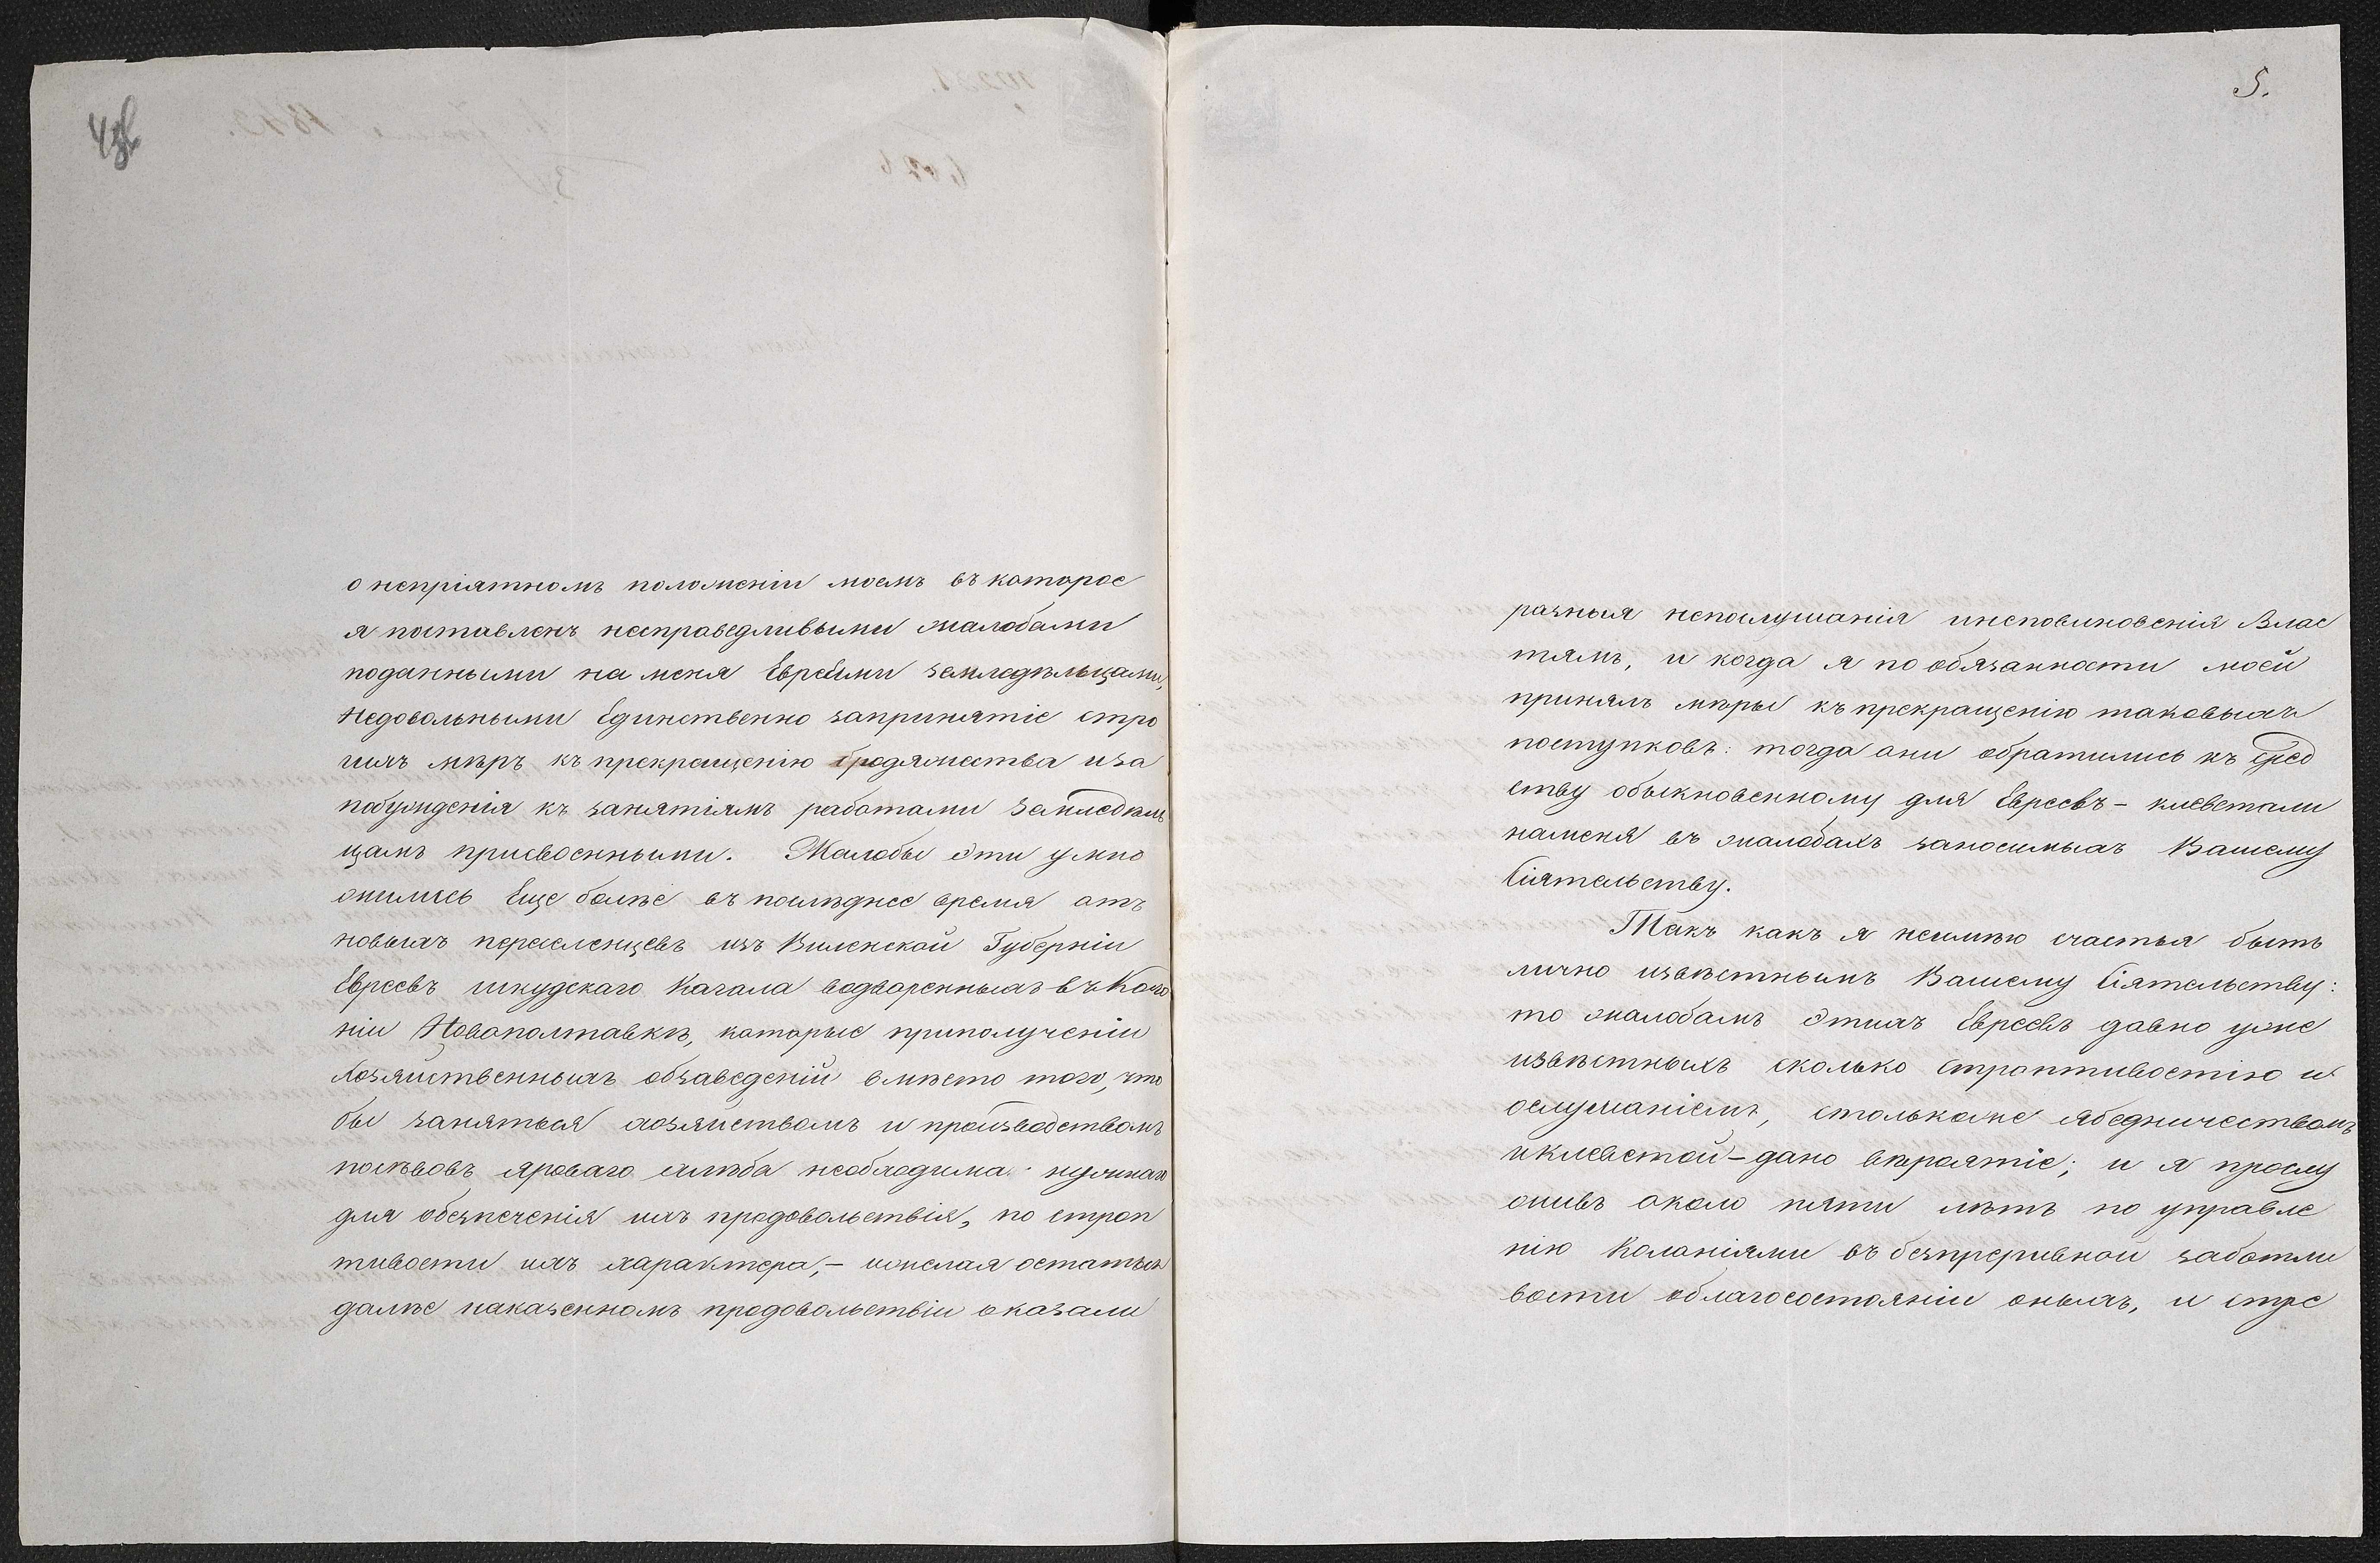 о непріятномъ положеніи моемъ въ которое
я поставленъ несправедливыми жалобами
поданными на меня Евреями земледѣльцами,
недовольными Единственно запринятіе стро
гихъ мѣръ къ прекращенію бродяжества иза
побужденія къ занятіямъ работами земледѣль
цамъ присвоенными. Жалобы эти умно
жились Еще болѣе въ послѣднее время отъ
новыхъ переселенцевъ изъ Виленской Губерніи
Евреевъ шкудскаго Кагала водворенныхъ въ Коло
ніи Новополтавкѣ, которые приполученіи
хозяйственныхъ обзаведеній вмѣсто того, что
бы заняться хозяйствомъ и производствомъ
посѣвовъ яроваго хлѣба необходимо нужнаго
для обезпеченія ихъ продовольствія, по строп
тивости ихъ характера,- ижелая остаться
далѣе наказенномъ продовольствіи оказали
5.
разныя непослушанія инеповиновенія Влас
тямъ, и когда я по обязанности моей
принялъ мѣры къ прекращенію таковыхъ
поступковъ: тогда они обратились къ сред
ству обыкновенному для Евреевъ - клеветали
наменя въ жалобахъ заносимыхъ Вашему
Сіятельству.
Такъ какъ я неимѣю счастья быть
лично извѣстнымъ Вашему Сіятельству:
то жалобамъ этихъ Евреевъ давно уже
извѣстныхъ сколько строптивостію и
ослушаніемъ, столькоже ябедничествомъ
иклеветой - дано вѣроятіе; и я прослу
живъ около пяти лѣтъ по управле
нію Колоніями въ безпрерывной заботли
вости облагосостояніи оныхъ, и стре